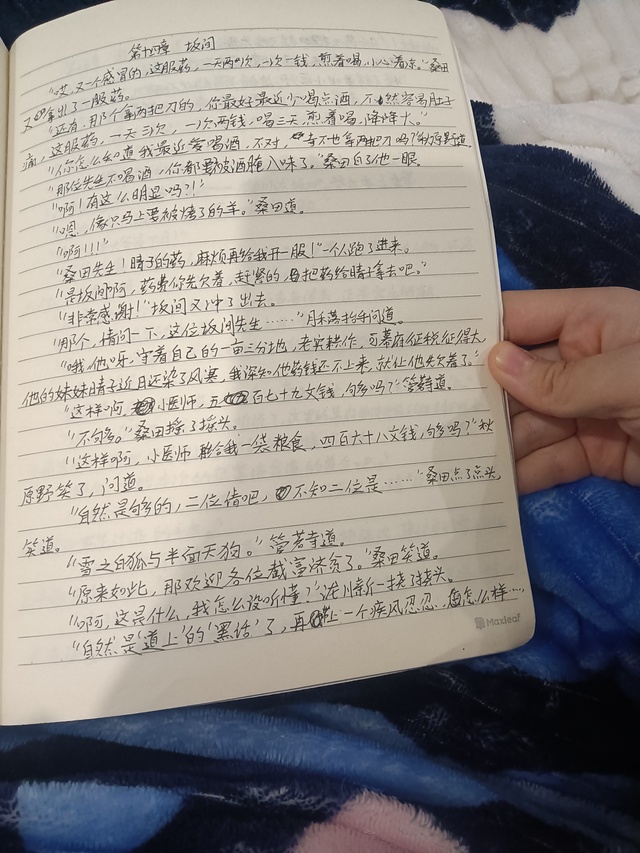 第十四章 坂间
“哎，又一个感冒的，这服药，一天两次，一次一钱，煎着喝，小心着凉。”桑田
又拿出了一服药。
“还有，那个拿两把刀的，你最好最近少喝点酒，不然容易肚子
痛，这服药，一天三次，一次两钱，喝三天，煎着喝，降降火。”
“你怎么知道我最近爱喝酒，不对，寺不也拿两把刀吗？”秋原野道
“那位先生不喝酒，你都要被酒腌入味了。”桑田白了他一眼。
“啊！有这么明显吗？！”
“嗯，像只马上要被烤了的羊。”桑田道。
“啊！！！”
“桑田先生！晴子的药，麻烦再给我开一服！”一个人跑了进来。
“是坂间啊，药费你先欠着，赶紧的，把药给晴子拿去吧。”
“非常感谢！”坂间又冲了出去。
“那个，借问一下，这位坂间先生……”月 抬手问道。
“哦，他呀，守着自己的一亩三分地，老实耕作，可幕府征税征得大，
他的妹妹晴子近月还染了风寒，我深知他药钱还不上来，就让他先欠着了。”
“这样啊，小医师，五百七十九文钱，够吗？”管若寺道。
“不够。”桑田摇了摇头。
“这样啊，小医师 给我一袋粮食，四百六十八文钱，够吗？”秋
原野笑了，问道。
“自然是够的，二位请吧，不知二位是……”桑田点了点头，
笑道。
“雪之白狐与半面天狗。”管若寺道。
“原来如此，那欢迎各位截富济贫了。”桑田笑道。
“啊，这是什么，我怎么没听懂？”浅川新一挠了挠头。
“自然是道上的‘黑话’了，再 上一个疾风忍忍，怎么样……
Maxleaf